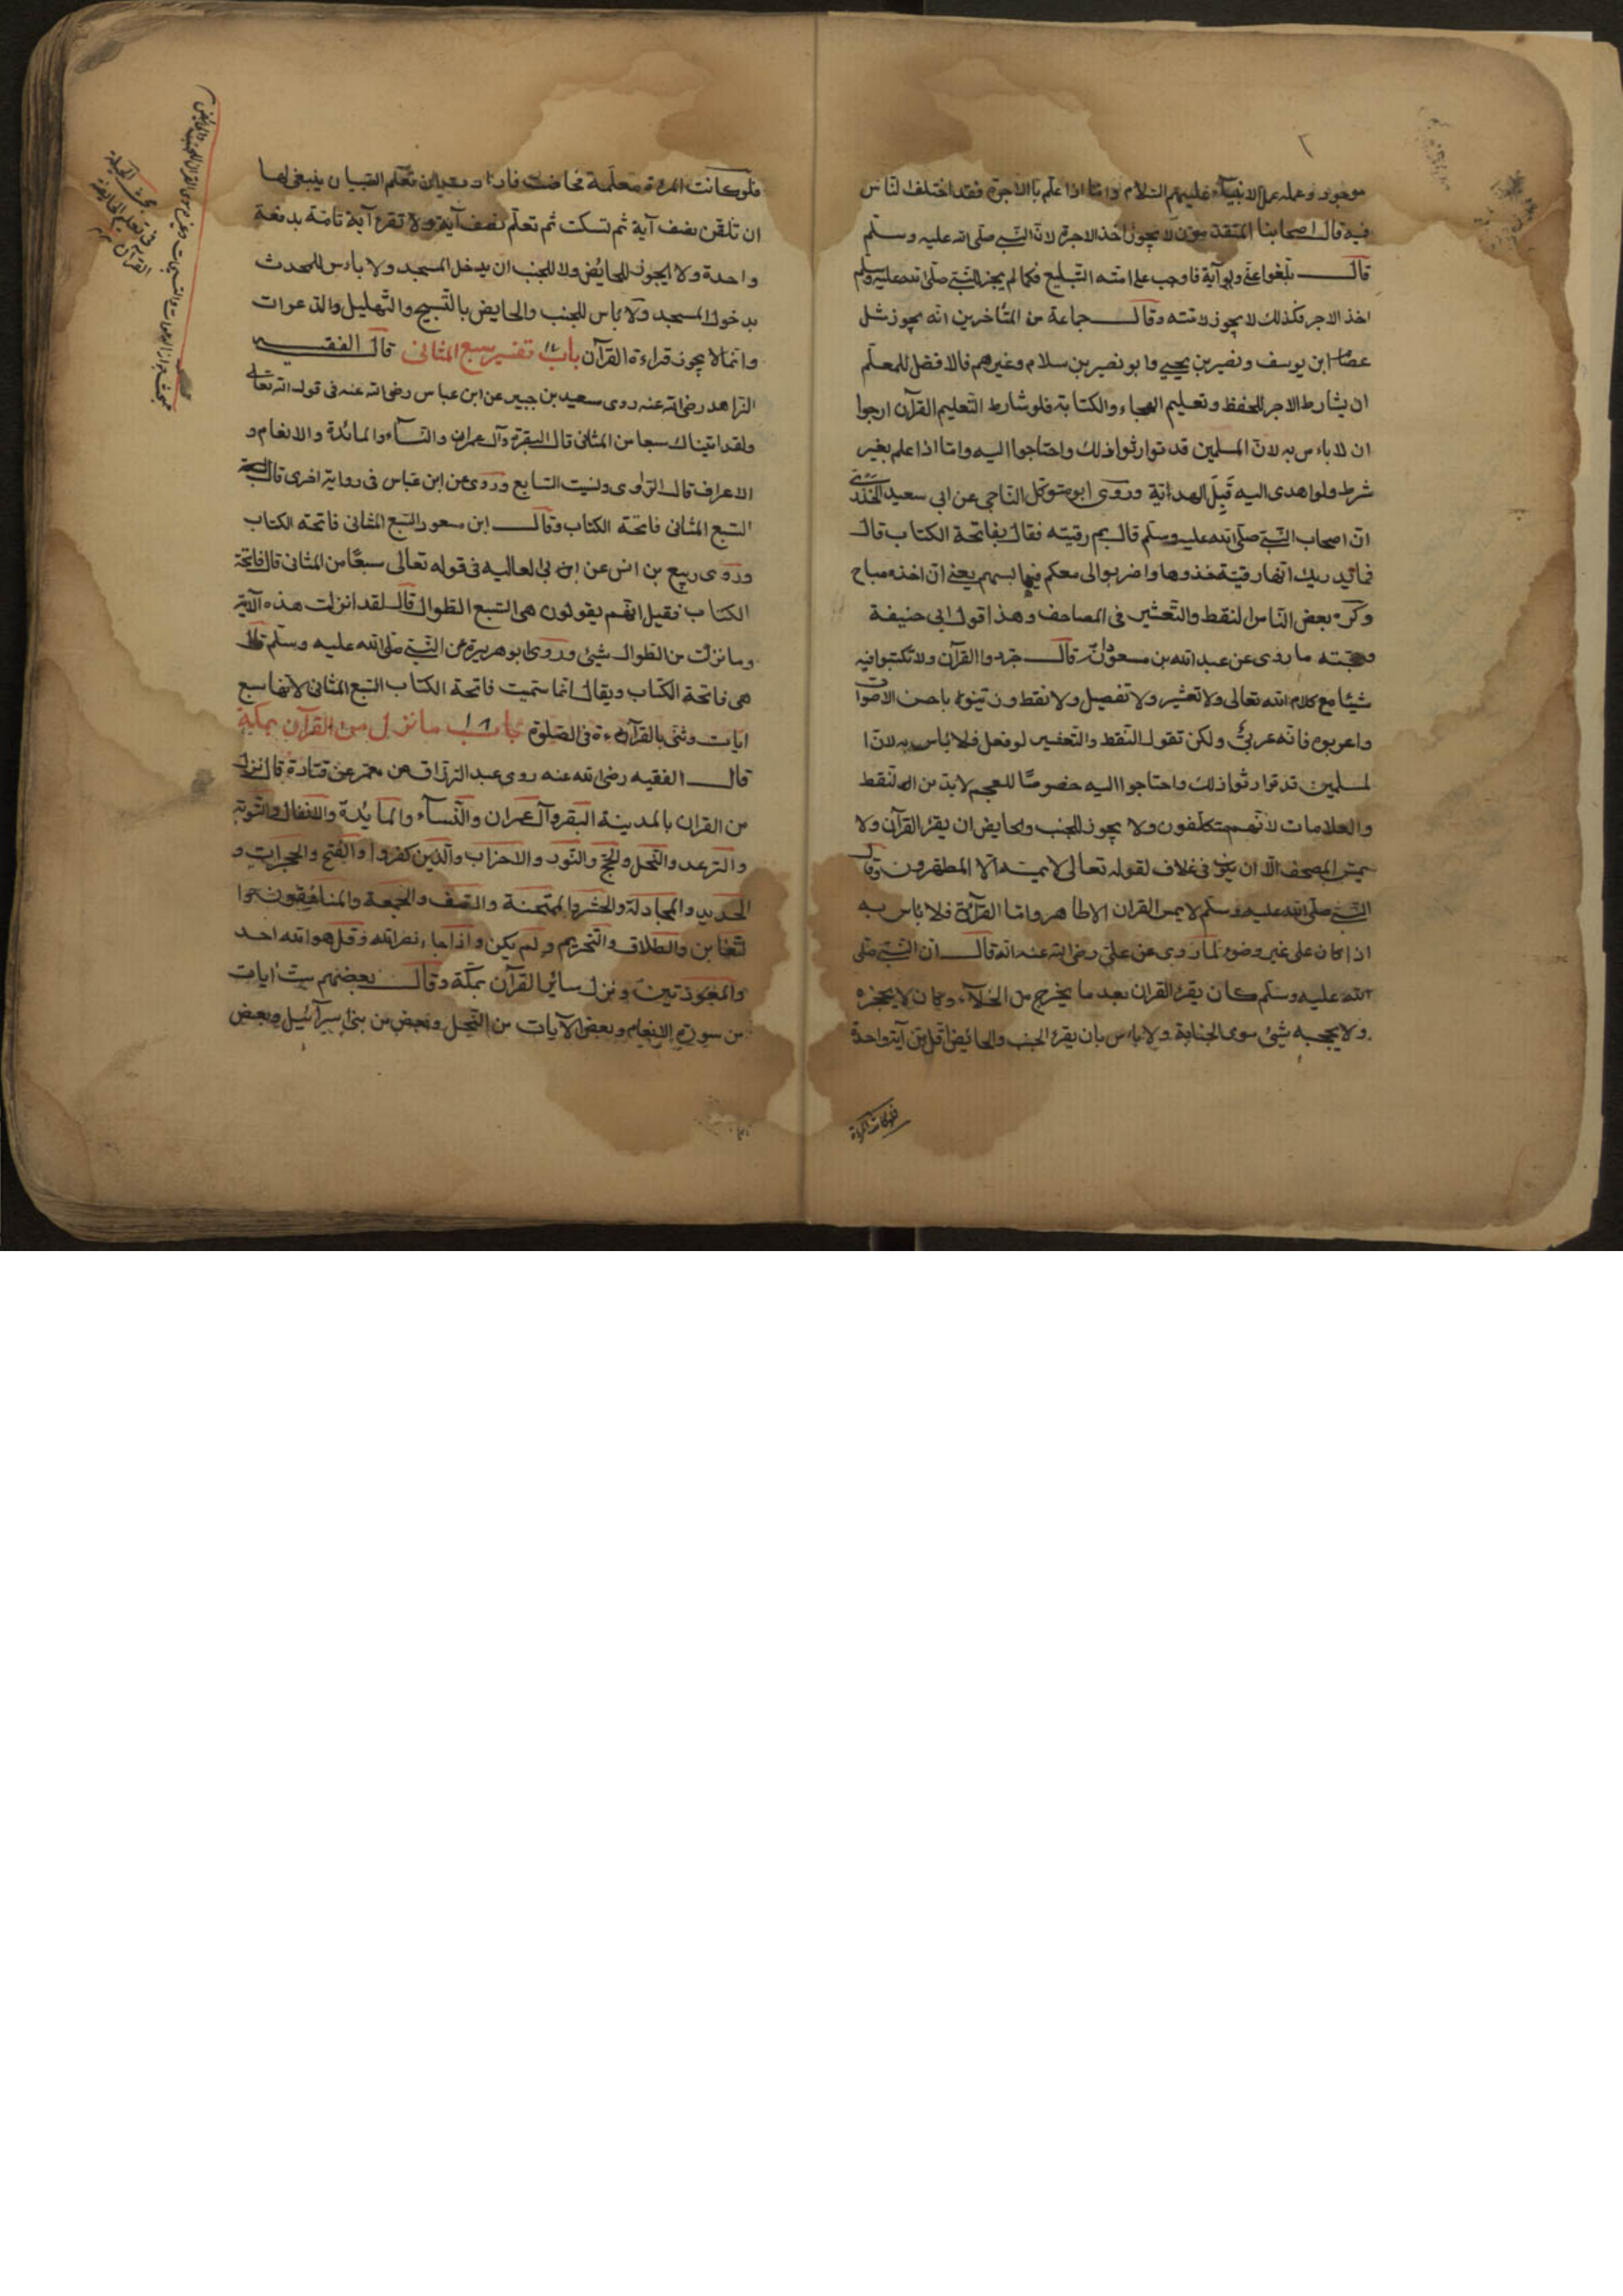 ٢
موجود وعمله عمل الانبياء عليهم السّلام وامّا اذا علّم بالاجرة فقد اختلف النّاس
فيه قال اصحابنا المتقدمون لا يجوز اخذ الاجرة لانّ النّبى صلّى الله عليه وسلّم
قال بلّغوا عنّى ولو آية فاوجب على امته التبليغ فكما لم يجز للنّبى صلّى الله عليه وسلّم
اخذ الاجر فكذلك لا يجوز لامته وقال جماعة من المتأخرين انه يجوز مثل
عصام ابن يوسف ونصير بن يحيى وابو نصير بن سلام وغيرهم فالافضل للمعلّم
ان يشارط الاجر للحفظ وتعليم الهجاء والكتابة فلو شارط التّعليم القرآن ارجوا
ان لا باءس به لانّ المسلمين قد توارثوا ذلك واحتاجوا اليه وامّا اذا علم بغير
شرط ولو اهدى اليه قَبِلَ الهداية وروى ابو متوكل النّاجى عن ابى سعيد الخدرى
انّ اصحاب النّبى صلّى الله عليه وسلّم قال بم رقيته فقال بفاتحة الكتاب قال
فما يدريك انّها رقية خذوها واضربوا لى معكم فيها بسهم يعنى انّ اخذه مباح
وكره بعض النّاس النقط والتّعشير فى المصاحف وهذا قول ابى حنيفة
وحجّته ما روى عن عبد الله بن مسعود انّه قال جرّدوا القرآن ولا تكتبوا فيه
شيئا مع كلام الله تعالى ولا تعشير ولا تفصيل ولا نقط وزيّنوه باحسن الاصوات
واعربوه فانّه عربىّ ولكن نقول النّقط والتعشير لو فعل فلا باس به لانّ ا
لمسلمين قد توارثوا ذلك واحتاجوا اليه خصوصًا للعجم لا بدّ من النّقط
والعلامات لانّهم متكلّفون ولا يجوز للجنب والحايض ان يقرء القرآن ولا
يمسّ المصحف الّا ان يكون فى غلاف لقوله تعالى لا يمسّه الّا المطهّرون وقال
النّبى صلّى الله عليه وسلّم لا يمس القران الا طاهر وامّا القرآءة فلا باس به
اذا كان على غير وضوء لما روى عن علىّ رضى الله عنه انّه قال انّ النّبى صلّى
الله عليه وسلّم كان يقرء القران بعد ما يخرج من الخلاء وكان لا يحجزه
ولا يحجبه شيئ سوى الجنابة ولا باءس بان يقرء الجنب والحائيض اقل من آية واحدة
فلو كانت المرءة
فلو كانت المرءة معلّمة فحاضت فارادت ان تعلّم الصّبيان ينبغى لها
ان تلقّن نصف آية ثم تسكت ثم تعلّم نصف آية ولا تقرء آية تامّة بدفعة
واحدة ولا يجوز للحايُض ولا للجنب ان يدخل المسجد ولا باءس للمحدث
بدخول المسجد ولا باس للجنب والحايض بالتّسبيح والتّهليل والدّعوات
وانّما لا يجوز قراءة القرآن باب ١٧ تفسير سبع المثانى قال الفقيه
الزّاهد رضى الله عنه روى سعيد بن جبير عن ابن عباس رضى الله عنه فى قوله الله تعالى
ولقد اتيناك سبعا من المثانى قال البقرة وآل عمران والنّسآء والمائدة والانعام و
الاعراف قال الرّاوى ونسيت السّابع وروى عن ابن عبّاس فى رواية اخرى قال
السّبع المثانى فاتحة الكتاب وقال ابن مسعود السّبع المثانى فاتحة الكتاب
وروى ربيع بن انس عن ابن بى لعاليه فى قوله تعالى سبعًا من المثانى قال فاتحة
الكتاب فقيل انّهم يقولون هى السّبع الطّوال قال لقد انزلت هذه الآية
وما نزلت من الطّوال شيئ وروى ابو هريرة عن النّبى صلى الله عليه وسلّم قال
هى فاتحة الكتاب ويقال انّما سمّيت فاتحة الكتاب السّبع المثانى لانّها سبع
ايات وثنّى بالقرآءة فى الصّلوة باب ١٨ ما نزل من القرآن بمكة
قال الفقيه رضى الله عنه روى عبد الرّزاق عن معمّر عن قتادة قال نزل
من القران بالمدينة البقرة وآل عمران والنّسآء والمايُدة والانفال والتّوبة
والرّعد والنّحل والحجّ والنّور والاحزاب والّذين كفروا والفتح والحجرات و
الحديد والمجادلة والحشر والممتحنة والصّف والجمعة والمنافقون وا
لتّغابن والطّلاق والتّحريم ولم يكن واذا جاء نصر الله وقل هو الله احد
والمعوّذتين ونزل سائر القرآن بمكّة وقال بعضهم ستّ ايات
من سورة الانعام وبعض الآيات من النّحل وبعض من بنى اسرآئيل وبعض